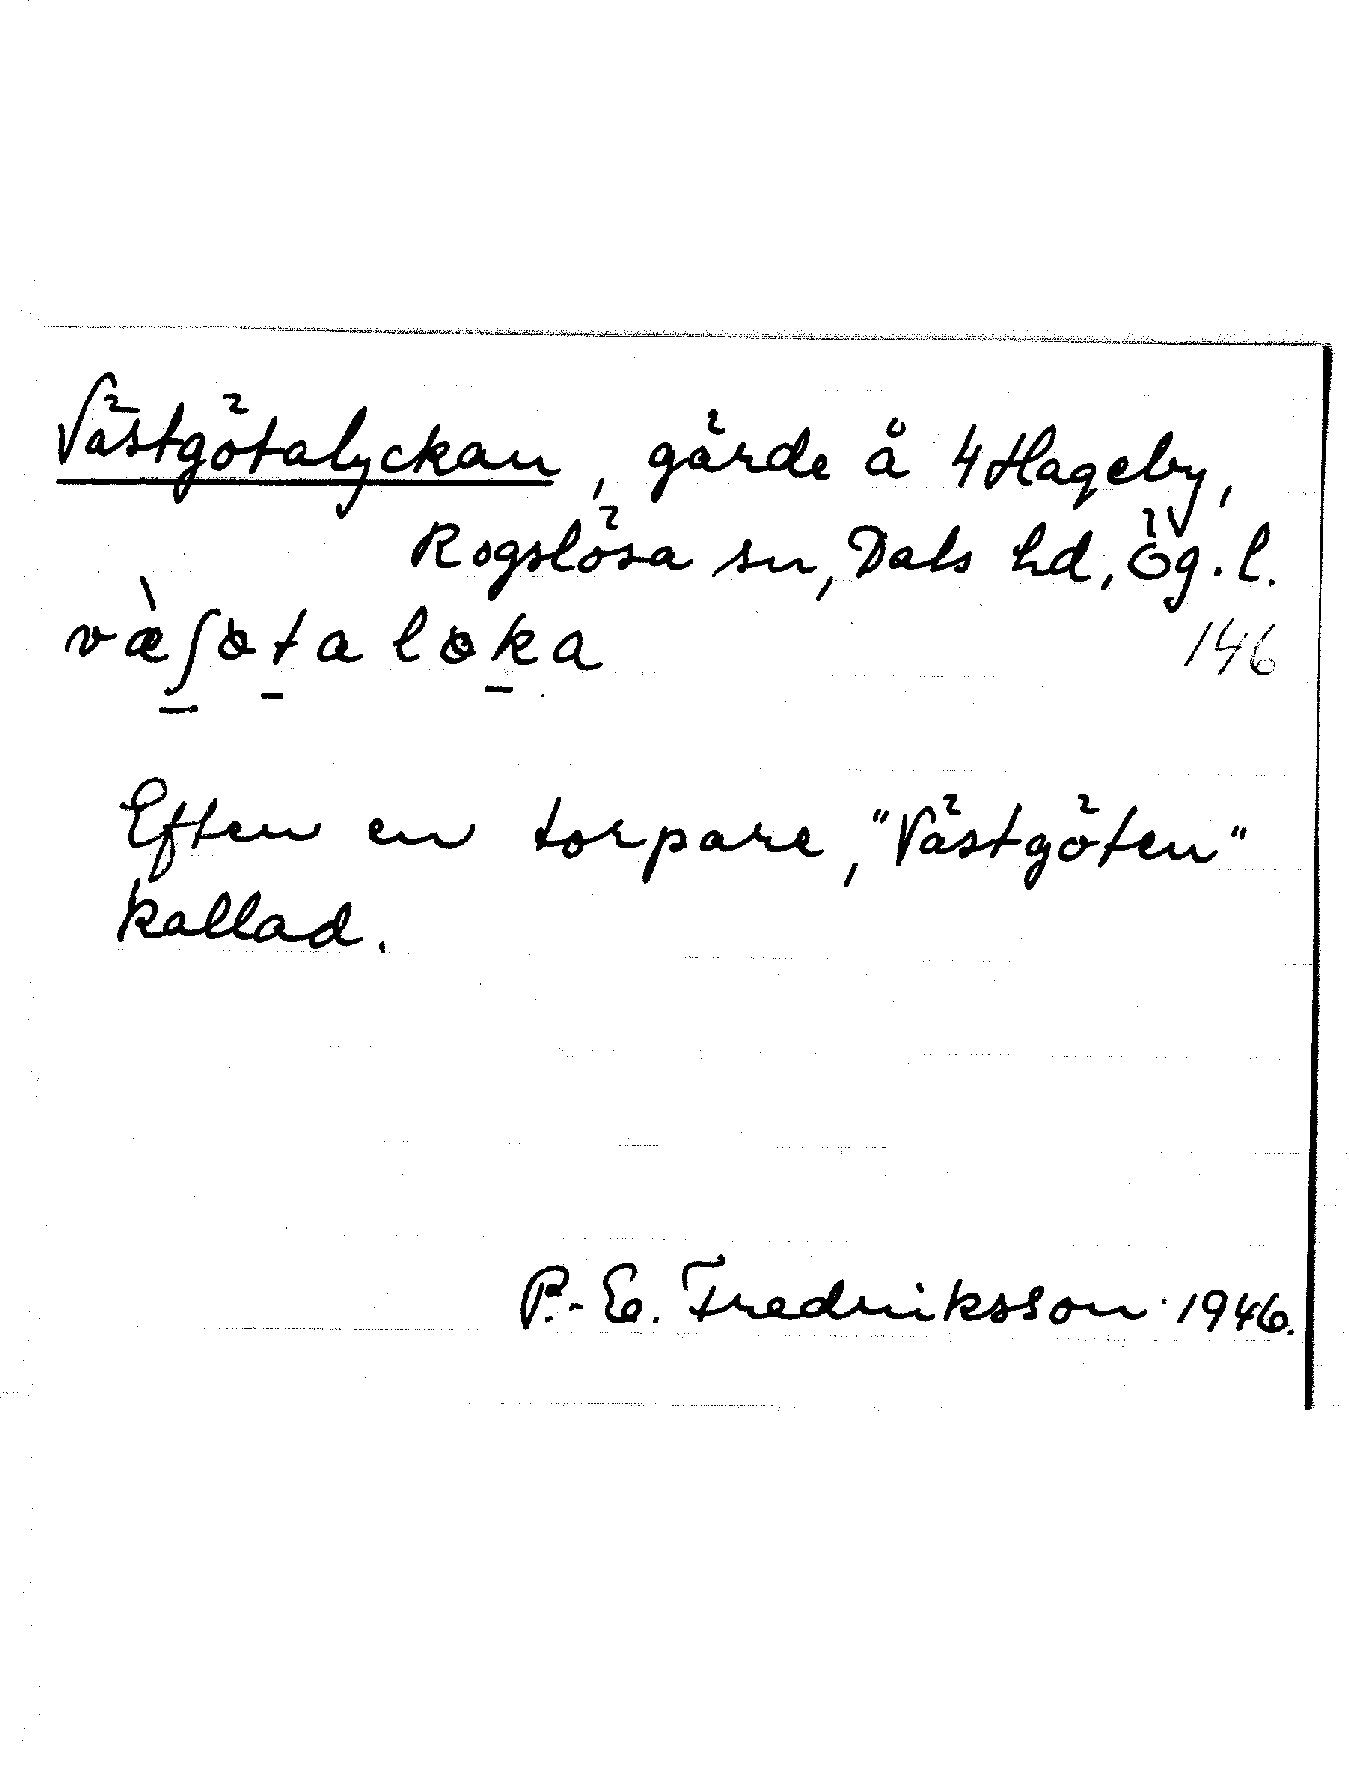 Västgötalyckan, gärde å 4 Hageby,
Rogslösa sn, Dals hd, Ög. l.
væ̀ʃɵta lɵka
146
Efter en torpare, "Västgöten"
kallad.
P.-E. Fredriksson 1946.